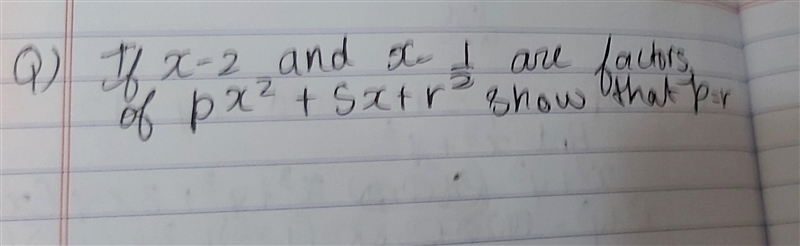 Q) If x-2 and x-1/2 are factors
of px² + 5x+r show that p=r